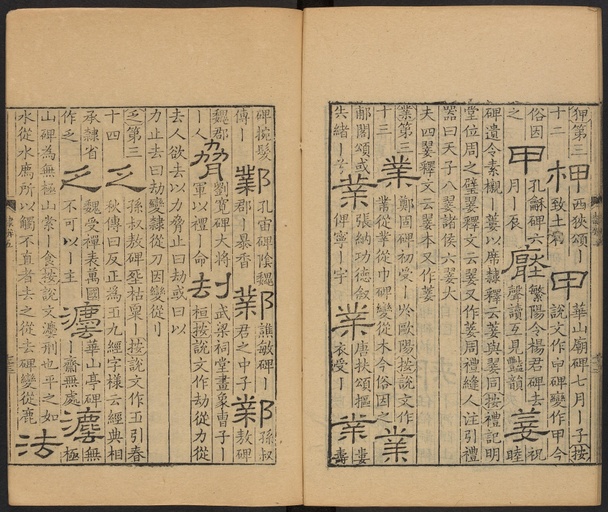 狎第三 柙 西狹頌丨 甲 華山廟碑七月丨子按
十二 致土利 說文作甲碑變作甲今
俗因 孔龢碑六 繁陽令楊君碑去 祝
之 甲 月丨辰 聲讀互見豔韻 萋 睦
碑遺令素櫬丨萋以席隸釋云萋與翣同按禮記明
堂位周之璧翣釋文云翣又作萋周禮縫人注引禮
器曰天子八翣諸侯六翣大
夫四翣釋文云翣本又作萋
業第三 業 鄭固碑初受丨於歐陽按說文作
十三 業從丵從巾碑變從木今俗因之 業
郙閣頌或 業 張納功德叙 業 唐扶頌摳 業 婁
失緒丨 俾寧丨宇 衣受丨 壽
碑捥髮 鄴 孔宙碑陰魏 鄴 譙敏碑丨 鄴 孫叔
傳丨 郡丨暴香 業 君之中子 業 敖碑
魏郡 劦 劉寬碑大將 刦 武梁祠堂畫象曹子丨
丨人 軍以禮丨命 去 桓按說文作劫從力從
去人欲去以力脅止曰劫或曰以
力止去曰劫變隸從刀因變從刂
乏第三 乏 孫叔敖碑枯稟丨按說文作𠂜引春
十四 秋傳曰反正為乏九經字樣云經典相
承隸省 乏 魏受禪表萬國 灋 華山亭碑 灋 無
作乏 不可以丨主 齋無處 極
山碑為無極山索丨食按說文灋刑也平之如
水從水廌所以觸不直者去之從去碑變從鹿 法